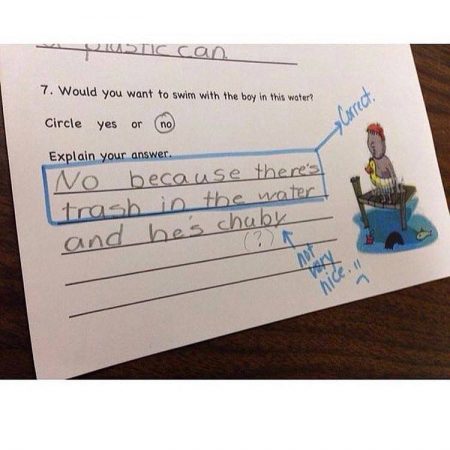 or plastic can
7. Would you want to swim with the boy in this water?
Circle yes or no
Correct.
Explain your answer.
No because there's
trash in the water
and he's chuby
(?)
not
very
nice.